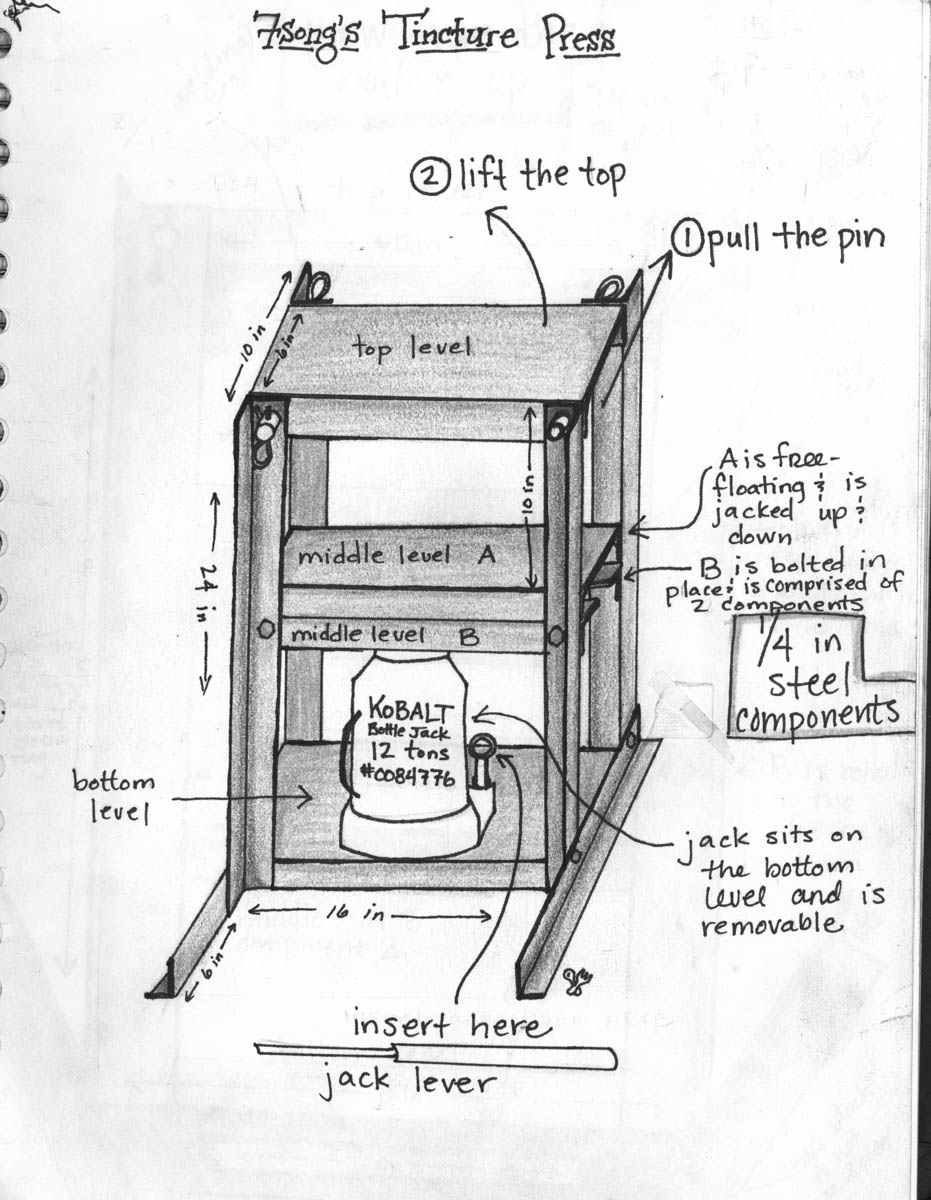 7Song's Tincture Press
② lift the top
① pull the pin
10 in
6 in
top level
10 in
A is free-
floating & is
jacked up &
down
middle level A
B is bolted in
place & is comprised of
2 components
24 in
middle level B
1/4 in
steel
components
KOBALT
Bottle Jack
12 tons
#0084776
bottom
level
jack sits on
the bottom
level and is
removable
16 in
6 in
insert here
jack lever